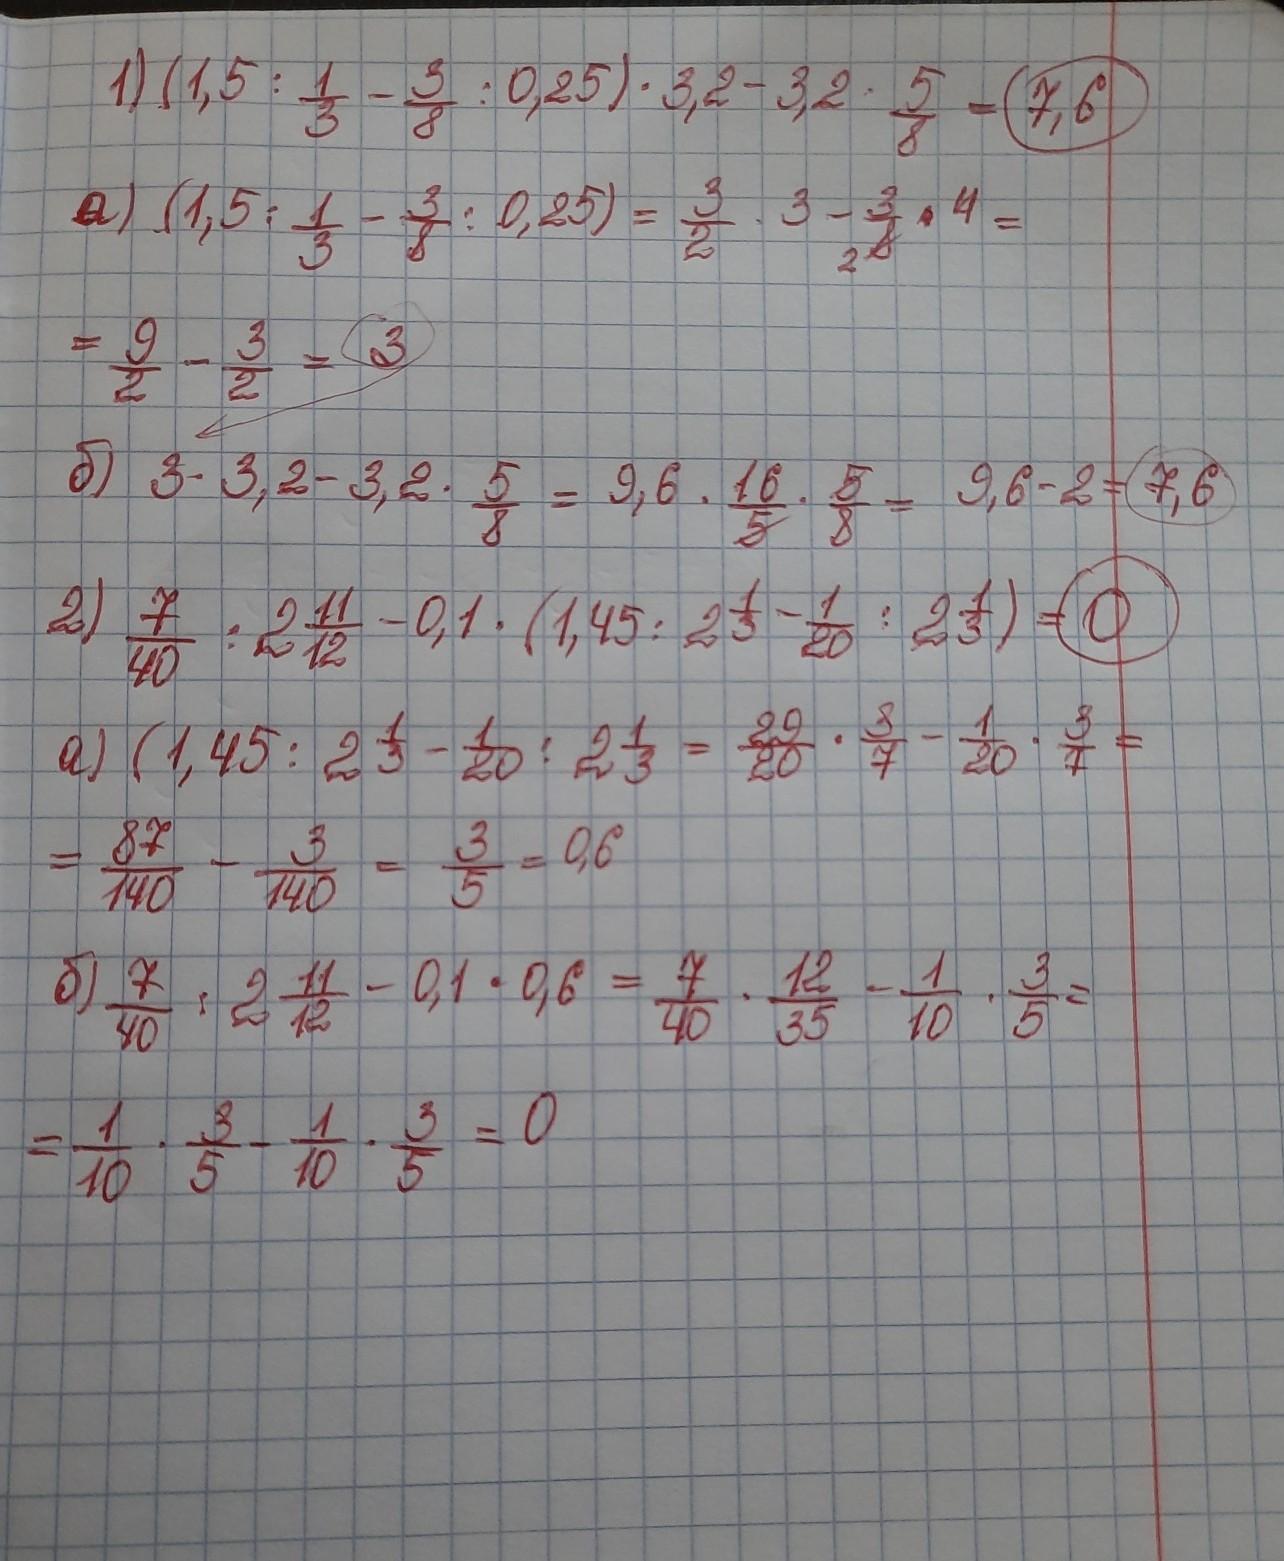 1) (1,5 : 1/3 - 3/8 : 0,25) · 3,2 - 3,2 · 5/8 = 7,6
а) (1,5 : 1/3 - 3/8 : 0,25) = 3/2 · 3 - 3/8 2 · 4 =
= 9/2 - 3/2 = 3
б) 3 · 3,2 - 3,2 · 5/8 = 9,6 · 16/5 · 5/8 = 9,6 - 2 = 7,6
2) 7/40 : 2 11/12 - 0,1 · (1,45 : 2 1/3 - 1/20 : 2 1/3) = 0
а) (1,45 : 2 1/3 - 1/20 : 2 1/3 = 29/20 · 3/7 - 1/20 · 3/7 =
= 87/140 - 3/140 = 3/5 = 0,6
б) 7/40 : 2 11/12 - 0,1 · 0,6 = 7/40 · 12/35 - 1/10 · 3/5 =
= 1/10 · 3/5 - 1/10 · 3/5 = 0